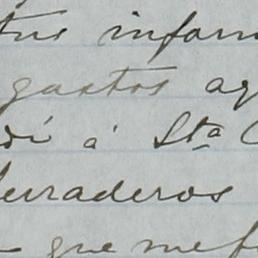 tus inform
gastos ag
di á Sta C
erraderos
que me f